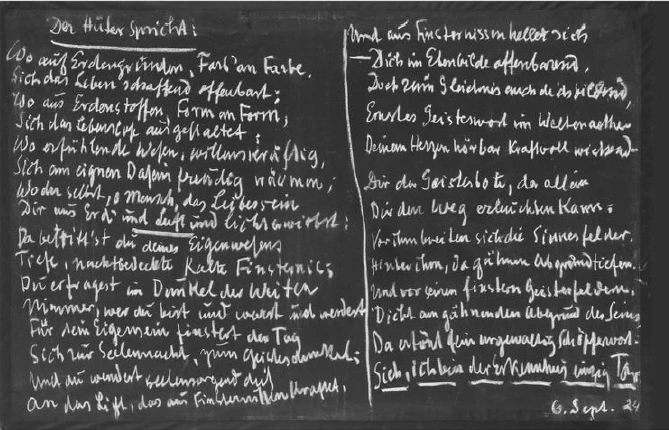 Der Hüter spricht:
Wo auf Erdengründen, Farb' an Farbe,
Sich das Leben schaffend offenbart;
Wo aus Erdenstoffen, Form an Form,
Sich das Lebenslose ausgestaltet;
Wo erfühlende Wesen, willenskräftig,
Sich am eignen Dasein freudig wärmen;
Wo du selbst, o Mensch, das Leibessein
Dir aus Erd' und Luft und Licht erwirbst:
Da betritt'st du deines Eigenwesens
Tiefe, nachtbedeckte Kalte Finsternis;
Du erfragest im Dunkel der Weiten
Nimmer, wer du bist und warst und werdest
Für dein Eigensein finstert der Tag
Sich zur Seelennacht, zum Geistesdunkel;
Und du wendest seelensorgend dich
An das Licht, das aus Finsternissen kraftet.
Und aus Finsternissen hellet sich
— Dich im Ebenbilde offenbarend,
Doch zum Gleichnis auch dich bildend,
Ernstes Geisteswort im Weltenaether
Deinem Herzen hörbar Kraftvoll wirkend—
Dir der Geistesbote, der allein
Dir den Weg erleuchten Kann;
Vor ihm breiten sich die Sinnesfelder.
Hinter ihm, da gähnen Abgrundtiefen.
Und vor seinen finstern Geistesfeldern,
Dicht am gähnenden Abgrund des Seins
Da ertönt sein urgewaltig Schöpferwort:
Sieh, ich bin der Erkenntnis einzig Tor.
6. Sept. 24